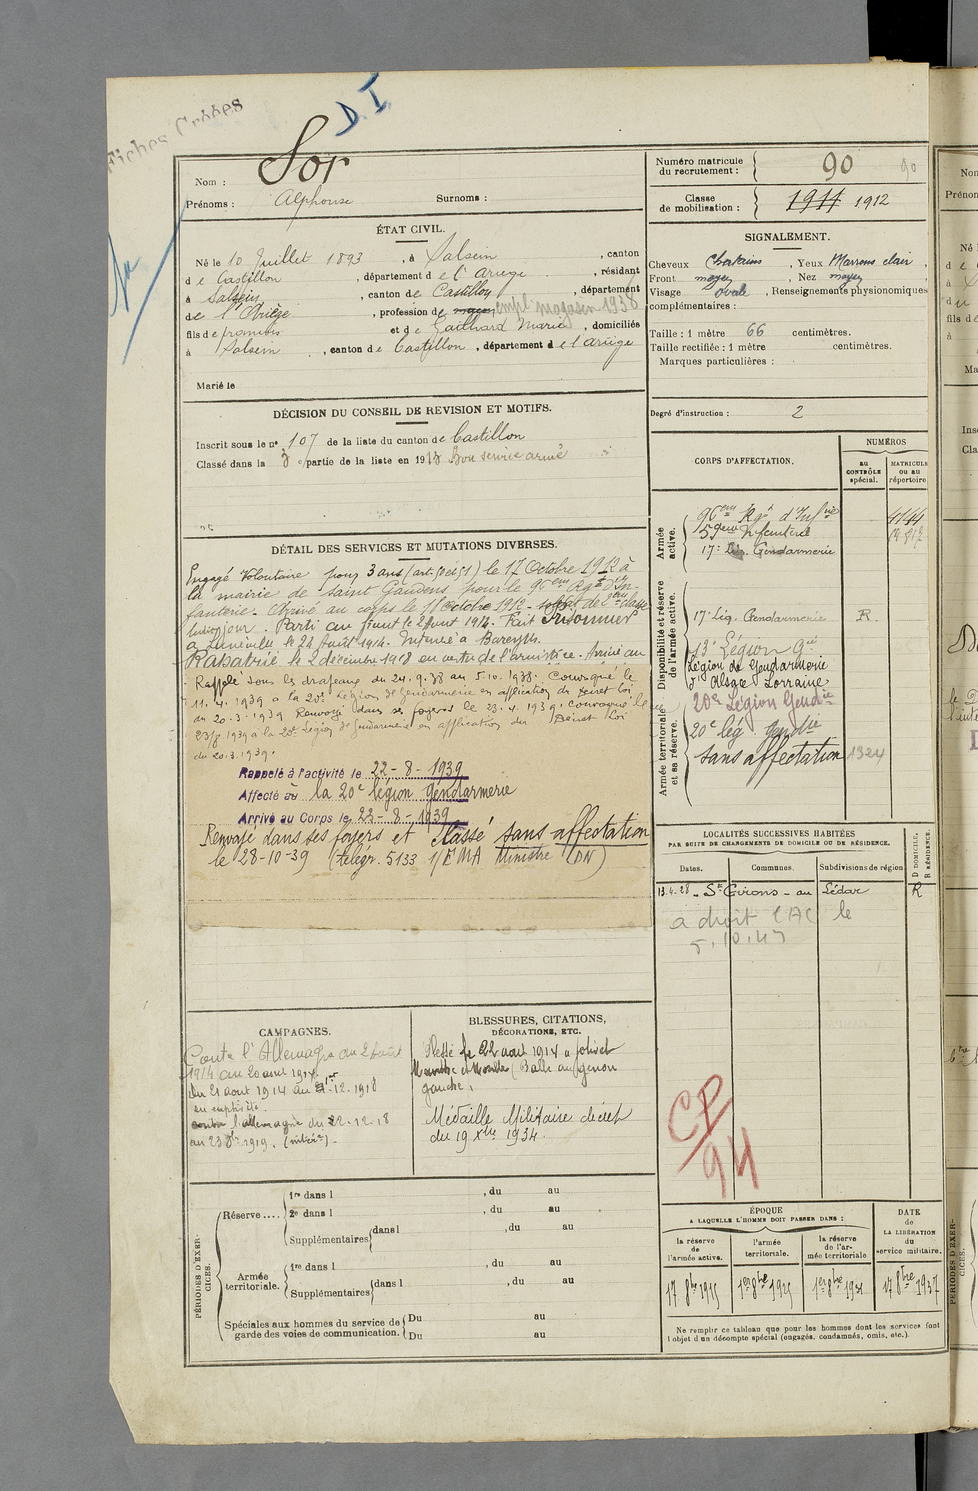 Fiches Créées
D.I.
Nom : Sor
Prénoms : Alphonse Surnoms :
Numéro matricule du recrutement : 90 90
Classe de mobilisation : 1911 1912
ÉTAT CIVIL.
Né le 10 Juillet 1893, à Salsein, canton
de Castillon, département de l'Ariège, résidant
à Salsein, canton de Castillon, département
de l'Ariège, profession de empl magasin 1938
fils de françois et de Gailhard Marie, domiciliés
à Salsein, canton de Castillon, département de l'Ariège
Marié le
SIGNALEMENT.
Cheveux Chatains, Yeux Marrons clair,
Front moyen, Nez moyen
Visage Ovale, Renseignements physionomiques
complémentaires :
Taille : 1 mètre 66 centimètres.
Taille rectifiée : 1 mètre centimètres.
Marques particulières :
Degré d'instruction : 2
DÉCISION DU CONSEIL DE REVISION ET MOTIFS.
Inscrit sous le n° 107 de la liste du canton de Castillon
Classé dans la 3e partie de la liste en 1913 Bon service armé
CORPS D'AFFECTATION.
NUMÉROS
AU CONTRÔLE spécial.
MATRICULE ou au répertoire
Armée active.
90em Rgt d'Infrie 4144
59eme Infanterie
17e Lég. Gendarmerie
Disponibilité et réserve de l'armée active.
17e Lég. Gendarmerie R.
13e Légion Gie
Légion de Gendarmerie
d'Alsace Lorraine
Armée territoriale et sa réserve.
20e Légion Gendie
20e lég Gendie
sans affectation 1324
DÉTAIL DES SERVICES ET MUTATIONS DIVERSES.
Engagé Volontaire pour 3 ans (art. 50 et 51) le 17 Octobre 1912 à
la mairie de Saint Gaudens pour le 90em Rgt d'In-
fanterie. Arrivé au corps le Octobre 1912 - soldat de 2eme classe
ledit jour. Parti au front le 2 Aout 1914. Fait Prisonnier
à Lunéville le 22 Aout 1914. Interné à
Rapatrié le 2 décembre 1918 en vertu de l'armistice. Arrivé au
Rappelé sous les drapeaux du 24.9.38 au 5.10.1938. Convoqué le
11.4.1939 à la 20e Légion de Gendarmerie en application du Décret Loi
du 20.3.1939 Renvoyé dans ses foyers le 23.4.1939. Convoqué le
23/8 1939 à la 20e Légion de Gendarmerie en application du Décret Loi
du 20.3.1939.
Rappelé à l'activité le 22-8-1939
Affecté à la 20e légion gendarmerie
Arrivé au Corps le 23-8-1939
Renvoyé dans ses foyers et Classé sans affectation
le 28-10-39 (télégr. 5133 1/EMA Ministre DN)
LOCALITÉS SUCCESSIVES HABITÉES
PAR SUITE DE CHANGEMENTS DE DOMICILE OU DE RÉSIDENCE.
Dates. Communes. Subdivisions de région D DOMICILE. R RÉSIDENCE.
13.4.28 - St Girons - au Lédar R
a droit CAC le
5.10.43
CAMPAGNES.
Contre l'Allemagne du 2 Août
1914 au 20 aout 1914.
Du 21 aout 1914 au 1er.12.1918
en captivité.
contre l'allemagne du 2.12.18
au 23 1919. (intér)
BLESSURES, CITATIONS,
DÉCORATIONS, ETC.
Blessé le 22 aout 1914 à Jolivet
Meurthe et Moselle (Balle au genou
gauche.
Médaille Militaire décret
du 19 Xbre 1934.
CP
94
PÉRIODES D'EXERCICES.
Réserve....
1re dans l , du au
2e dans l , du au
Supplémentaires dans l , du au
Armée territoriale.
1re dans l , du au
Supplémentaires dans l , du au
Spéciales aux hommes du service de garde des voies de communication.
Du au
Du au
ÉPOQUE
A LAQUELLE L'HOMME DOIT PASSER DANS :
DATE de LA LIBÉRATION du service militaire.
la réserve de l'armée active.
l'armée territoriale.
la réserve de l'armée territoriale
17 8bre 1915
1er 8bre 1925
1er 8bre 1931
17 8bre 1937
Ne remplir ce tableau que pour les hommes dont les services font
l'objet d'un décompte spécial (engagés, condamnés, omis, etc.).